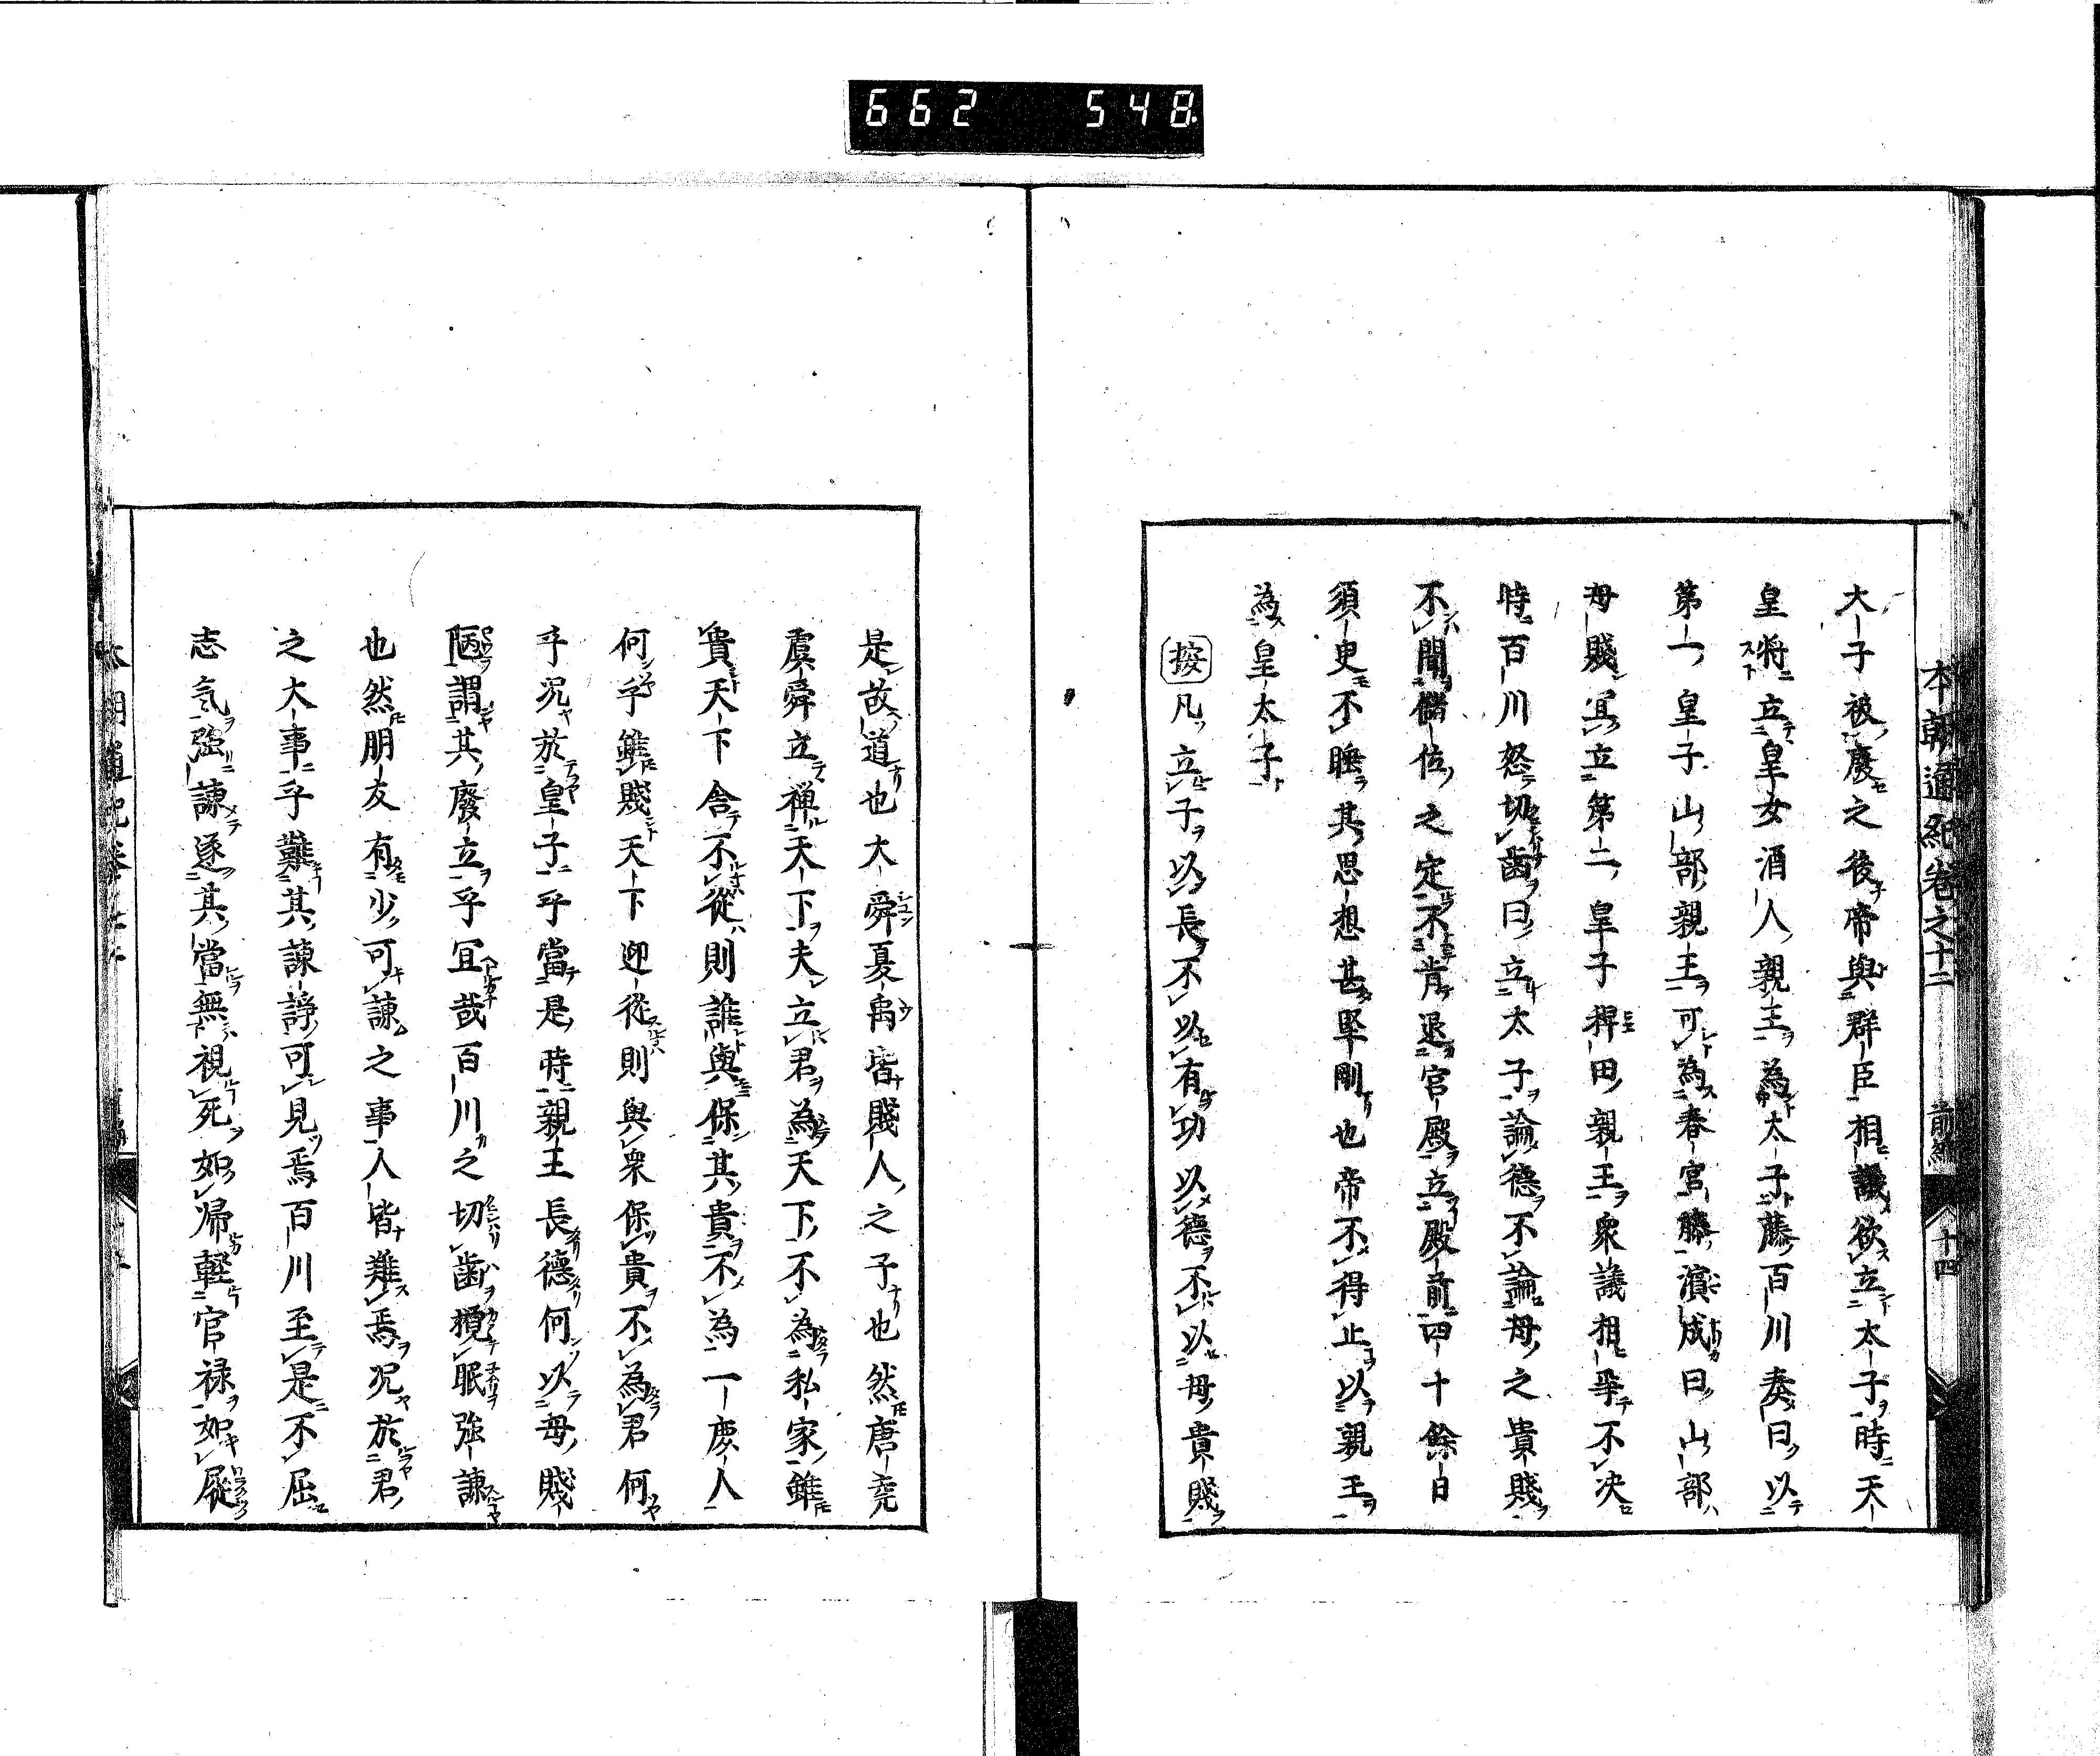 662 548
本朝通紀卷之十二 前編 十四
太子被廢之後帝與群臣相議欲立太子時天
皇將立皇女酒人親王為太子藤百川奏曰以
第一皇子山部親王可為春宮藤濱成曰山部
母賤冝立第二皇子稗田親王衆議相爭不决
時百川怒切齒曰立太子論德不論母之貴賤
不聞儲位之定不肯退官殿立殿前四十餘日
須臾不睡其思想甚堅剛也帝不得止以親王
為皇太子
按凡立子以長不以有功以德不以母貴賤
是故道也大舜夏禹皆賤人之子也然唐堯
虞舜立禅天下夫立君為天下不為私家雖
貴天下舎不從則誰與保其貴不為一處人
何乎雖賤天下迎從則與衆保貴不為君何
乎况於皇子乎當是時親王長德何以母賤
陋謂其廢立乎冝哉百川之切齒攪眠強諫
也然朋友有少可諫之事人皆難焉况於君
之大事乎難其諫諍可見焉百川至是不屈
志気強諫遂其當無視死如帰輕官禄如屣